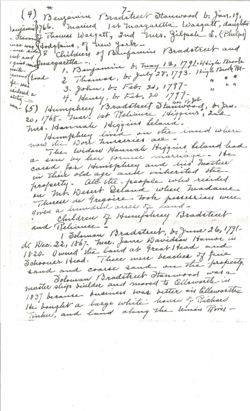 7.
(4) Benjamin Bradstreet Stanwood b. Jan. 19,
1766. Married 1st Margaretta Wasgatt, daughter
Thomas Wasgatt, 2nd Mrs.
New York
Children of Benjamin Bradstreet and
Margaretta.
1. Benjamin b. May 12, 1791
2. Thomas, b. July 28, 1793.
3. John, b. Feb. 20, 1797
4. Henry, b. Feb. 20 1797
(5) Humphrey Bradstreet Stanwood, b. Jan.
20, 1768. Mar. 1st Reliance Higgins, 2nd
Mrs. Hannah Higgins Leland.
Humphrey lived on the land where
now the Dorr nurseries are.
The Widow Hannah Higgins Leland had
a son by her former marriage. He
cared for Humphrey and his Mother
in their old age and inherited the
property. All the people who resided
on Mt. Desert Island when Madame
Theresa de Gregoire took possession were
given a hundred acres of land.
Children of Humphrey Bradstreet
and Reliance:
1 Soloman Bradstreet, b. June 26, 1791-
d. Dec. 22, 1867. Mar. Jane Davidson Hamor in
1820. Owned the land at Great Head and
Schooner Head. There were beaches of fine
sand and coarse sand on the property.
Soloman Bradstreet Stanwood was a
master ship builder and moved to Ellsworth in
1837 because business was better in Ellsworth.
He bought a large white house of Richard
and land along the Union River